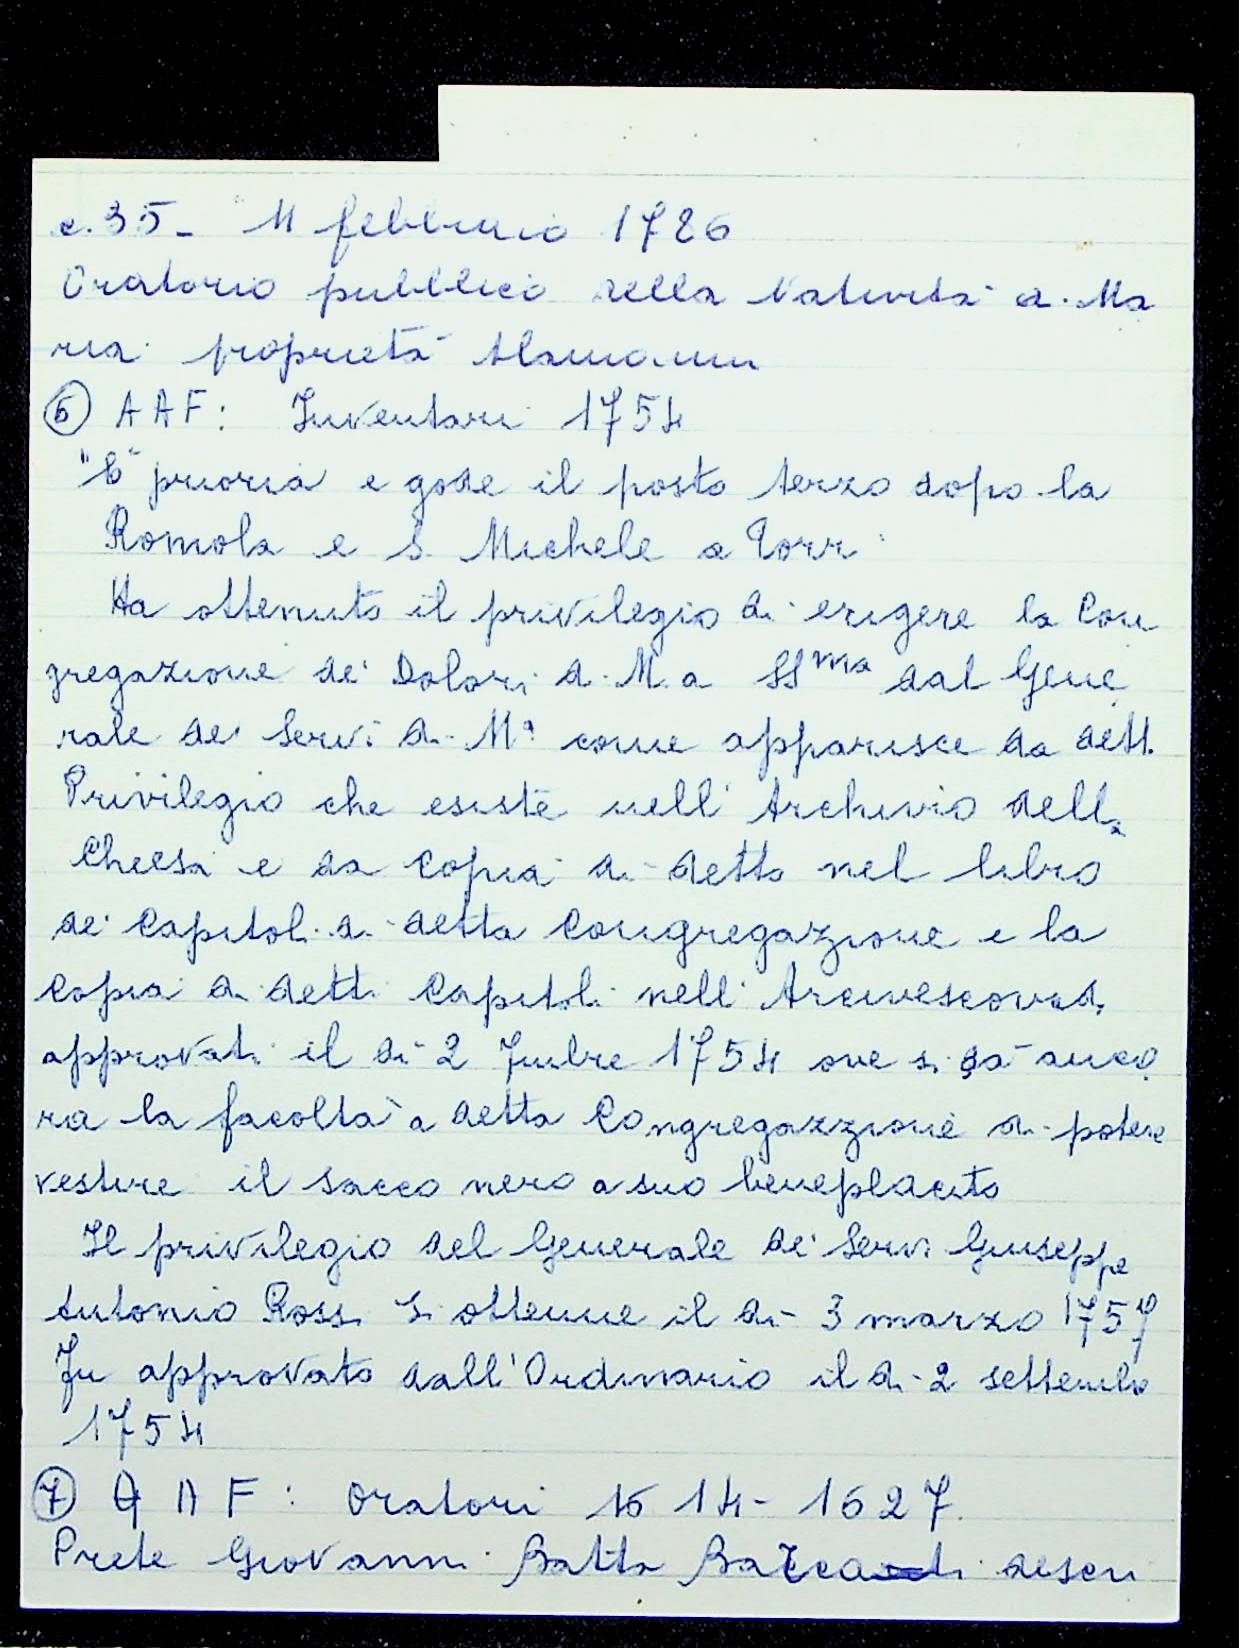 c. 35 - 11 febbraio 1786
Oratorio pubblico della Natività di Ma
ria proprietà Alamanni
⑥ AAF: Inventari 1754
"È" prioria e gode il posto terzo dopo la
Romola e S. Michele a Torri
Ha ottenuto il privilegio di erigere la Con
gregazione de' Dolori di M.a SSma dal Gene
rale de' Servi di Ma come apparisce da dett.
Privilegio che esiste nell' Archivio della
Chiesa e da copia di detto nel libro
de' Capitoli di detta Congregazione e la
copia di detti Capitoli nell' Arcivescovad.
approvati il dì 2 7mbre 1754 ove si dà anco
ra la facoltà a detta Congregazzione di potere
vestire il sacco nero a suo beneplacito
Il privilegio del Generale de' Servi Giuseppe
Antonio Rossi si ottenne il dì 3 marzo 1757
Fu approvato dall' Ordinario il dì 2 settembre
1754
⑦ A A F: Oratori 1614 - 1627
Prete Giovanni Batta descri